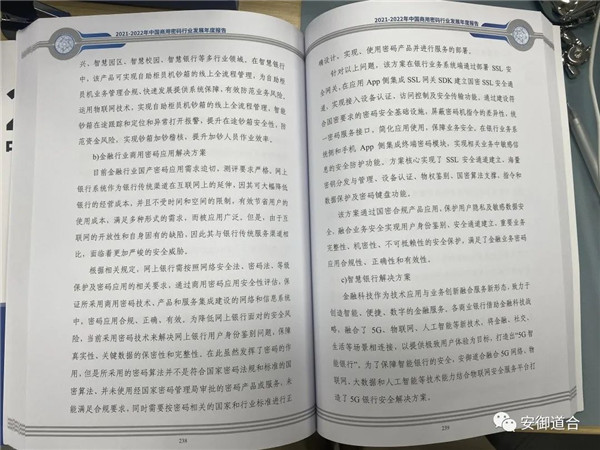 2021-2022年中国商用密码行业发展年度报告
兴、智慧园区、智慧校园、智慧银行等多行业领域。在智慧银行
中，该产品可实现自助柜员机钞箱的线上全流程管理，为自助柜
员机业务管理合规、快速发展提供系统保障，有效防范业务风险。
运用物联网技术，实现自助柜员机钞箱的线上全流程管理，智能
钞箱在途跟踪和定位和异常打开报警，提升在途钞箱安全性，防
范资金风险，实现钞箱加钞稽核，提升加钞人员作业效率。
b)金融行业商用密码应用解决方案
目前金融行业国产密码应用需求迫切、测评要求严格。网上
银行系统作为银行传统渠道在互联网上的延伸，因其可大幅降低
银行的经营成本，并且不受时间和空间的限制，有效节省用户的
使用成本，满足多种形式的需求，而被应用广泛。但是，由于互
联网的开放性和自身固有的缺陷，因此其与银行传统服务渠道相
比，面临着更加严峻的安全威胁。
根据相关规定，网上银行需按照网络安全法、密码法、等级
保护及密码应用的相关要求，通过商用密码应用安全性评估，保
证所采用商用密码技术、产品和服务集成建设的网络和信息系统
中，密码应用合规、正确、有效。为降低网上银行面对的安全风
险，当前采用密码技术来解决网上银行用户身份鉴别问题，保障
真实性，关键数据的保密性和完整性。在此虽然发挥了密码的作
用，但是所采用的密码算法并不是符合国家密码法规和标准的国
密算法，并未使用经国家密码管理局审批的密码产品或服务，未
能满足合规要求，同时需要按密码相关的国家和行业标准进行正
238
2021-2022年中国商用密码行业发展年度报告
确设计、实现、使用密码产品并进行服务的部署。
针对以上问题，该方案在银行业务系统端通过部署 SSL 安
全网关，在应用 App 侧集成 SSL 网关 SDK 建立国密 SSL 安全通
道，实现接入设备认证、访问控制及安全传输功能。通过建设符
合国密要求的密码安全基础设施，屏蔽密码机指令的差异性，统
一密码服务接口，简化应用使用，保障业务安全。在银行业务系
统侧和手机 App 侧集成终端密码模块，实现相关业务中敏感信
息的安全防护功能。方案核心实现了 SSL 安全通道建立、海量
密钥分发与管理、设备认证、物权鉴别、国密算法支撑、指令和
数据保护及密码键盘功能。
该方案通过国密合规产品应用，保护用户隐私及敏感数据安
全，融合业务安全实现用户身份鉴别、安全通道建立、重要业务
完整性、机密性、不可抵赖性的安全保护，满足了金融业务密码
应用合规性、正确性和有效性。
c)智慧银行解决方案
金融科技作为技术应用与业务创新融合服务新形态，致力于
创造智能、便捷、数字的金融服务。各商业银行借助金融科技战
略，融合了 5G、物联网、人工智能等新技术，将金融、社交、
生活等场景相连接，以提供极致用户体验为目标，打造出“5G 智
能银行”，为了保障智能银行的安全，安御道合融合 5G 网络、物
联网、大数据和人工智能等技术能力结合物联网安全服务平台打
造了 5G 银行安全解决方案。
239
安御道合